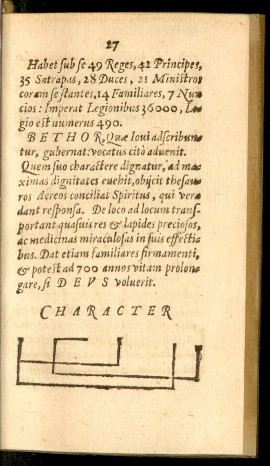 27
Habet sub se 49 Reges, 42 Principes,
35 Satrapas, 28 Duces, 21 Ministros
coram se stantes, 14 Familiares, 7 Nun-
cios: Imperat Legionibus 36000, Le-
gio est numerus 490.
BETHOR, Quæ Ioui adscribun-
tur, gubernat: vocatus citò aduenit.
Quem suo charactere dignatur, ad ma-
ximas dignitates euehit, obijcit thesau-
ros Aereos conciliat Spiritus, qui vera
dant responsa. De loco ad locum trans-
portant quasuis res & lapides preciosos,
ac medicinas miraculosas in suis effecti-
bus. Dat etiam familiares firmamenti,
& potest ad 700 annos vitam prolon-
gare, si DEVS voluerit.
CHARACTER